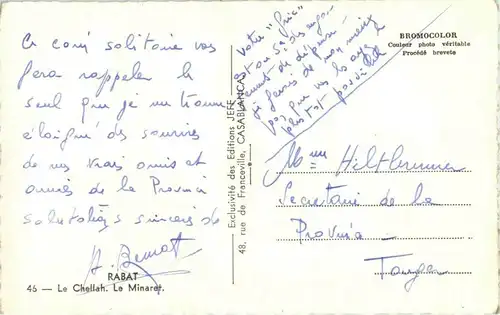 Ce coin solitaire vous
fera rappeler le
seul que je me trouve
éloigné des sourires
de vos vrais amis et
amies de la Province
Salutations sinceres de
A. Bemot
RABAT
46 — Le Chellah. Le Minaret.
Exclusivité des Editions JEFF
48, rue de Franceville, CASABLANCA
Votre
je ferais de mon mieux
plus tot possible
BROMOCOLOR
Couleur photo véritable
Procédé breveté
Hiltbrunner
Secretaire de la
Province
Tanger